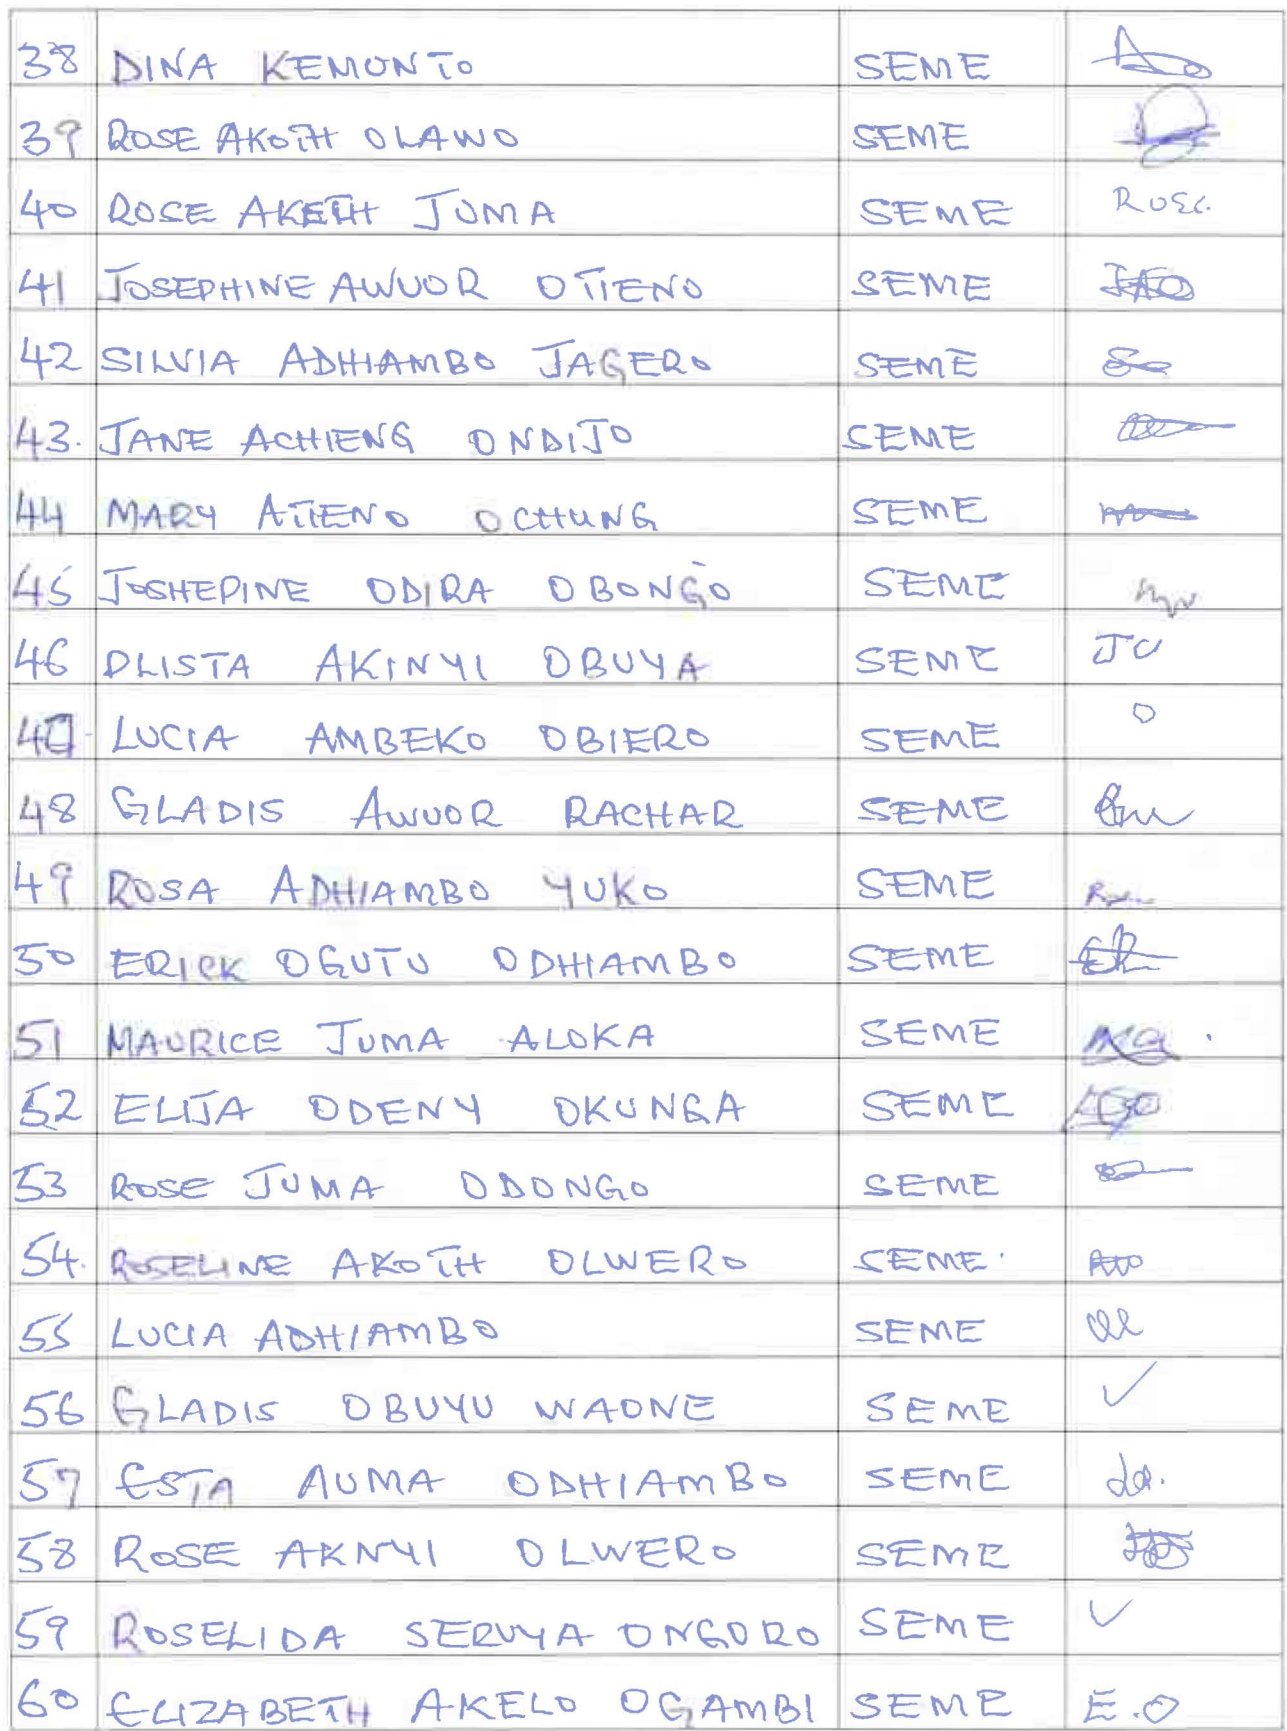 38 DINA KEMUNTO SEME
39 ROSE AKOTH OLAWO SEME
40 ROSE AKETH JUMA SEME ROSE.
41 JOSEPHINE AWUOR OTIENO SEME JAO
42 SILVIA ADHIAMBO JAGERO SEME
43. JANE ACHIENG ONDIJO SEME
44 MARY ATIENO OCHUNG SEME
45 JOSHEPINE ODIRA OBONGO SEME
46 DLISTA AKINYI OBUYA SEME JO
47 LUCIA AMBEKO OBIERO SEME O
48 GLADIS AWUOR RACHAR SEME
49 ROSA ADHIAMBO YUKO SEME
50 ERICK OGUTU ODHIAMBO SEME
51 MAURICE JUMA ALOKA SEME
52 ELIJA ODENY OKUNGA SEME
53 ROSE JUMA ODONGO SEME
54. ROSELINE AKOTH OLWERO SEME
55 LUCIA ADHIAMBO SEME
56 GLADIS OBUYU WAONE SEME ✓
57 ESTA AUMA ODHIAMBO SEME
58 ROSE AKNYI OLWERO SEME
59 ROSELIDA SERVYA ONGORO SEME ✓
60 ELIZABETH AKELO OGAMBI SEME E.O